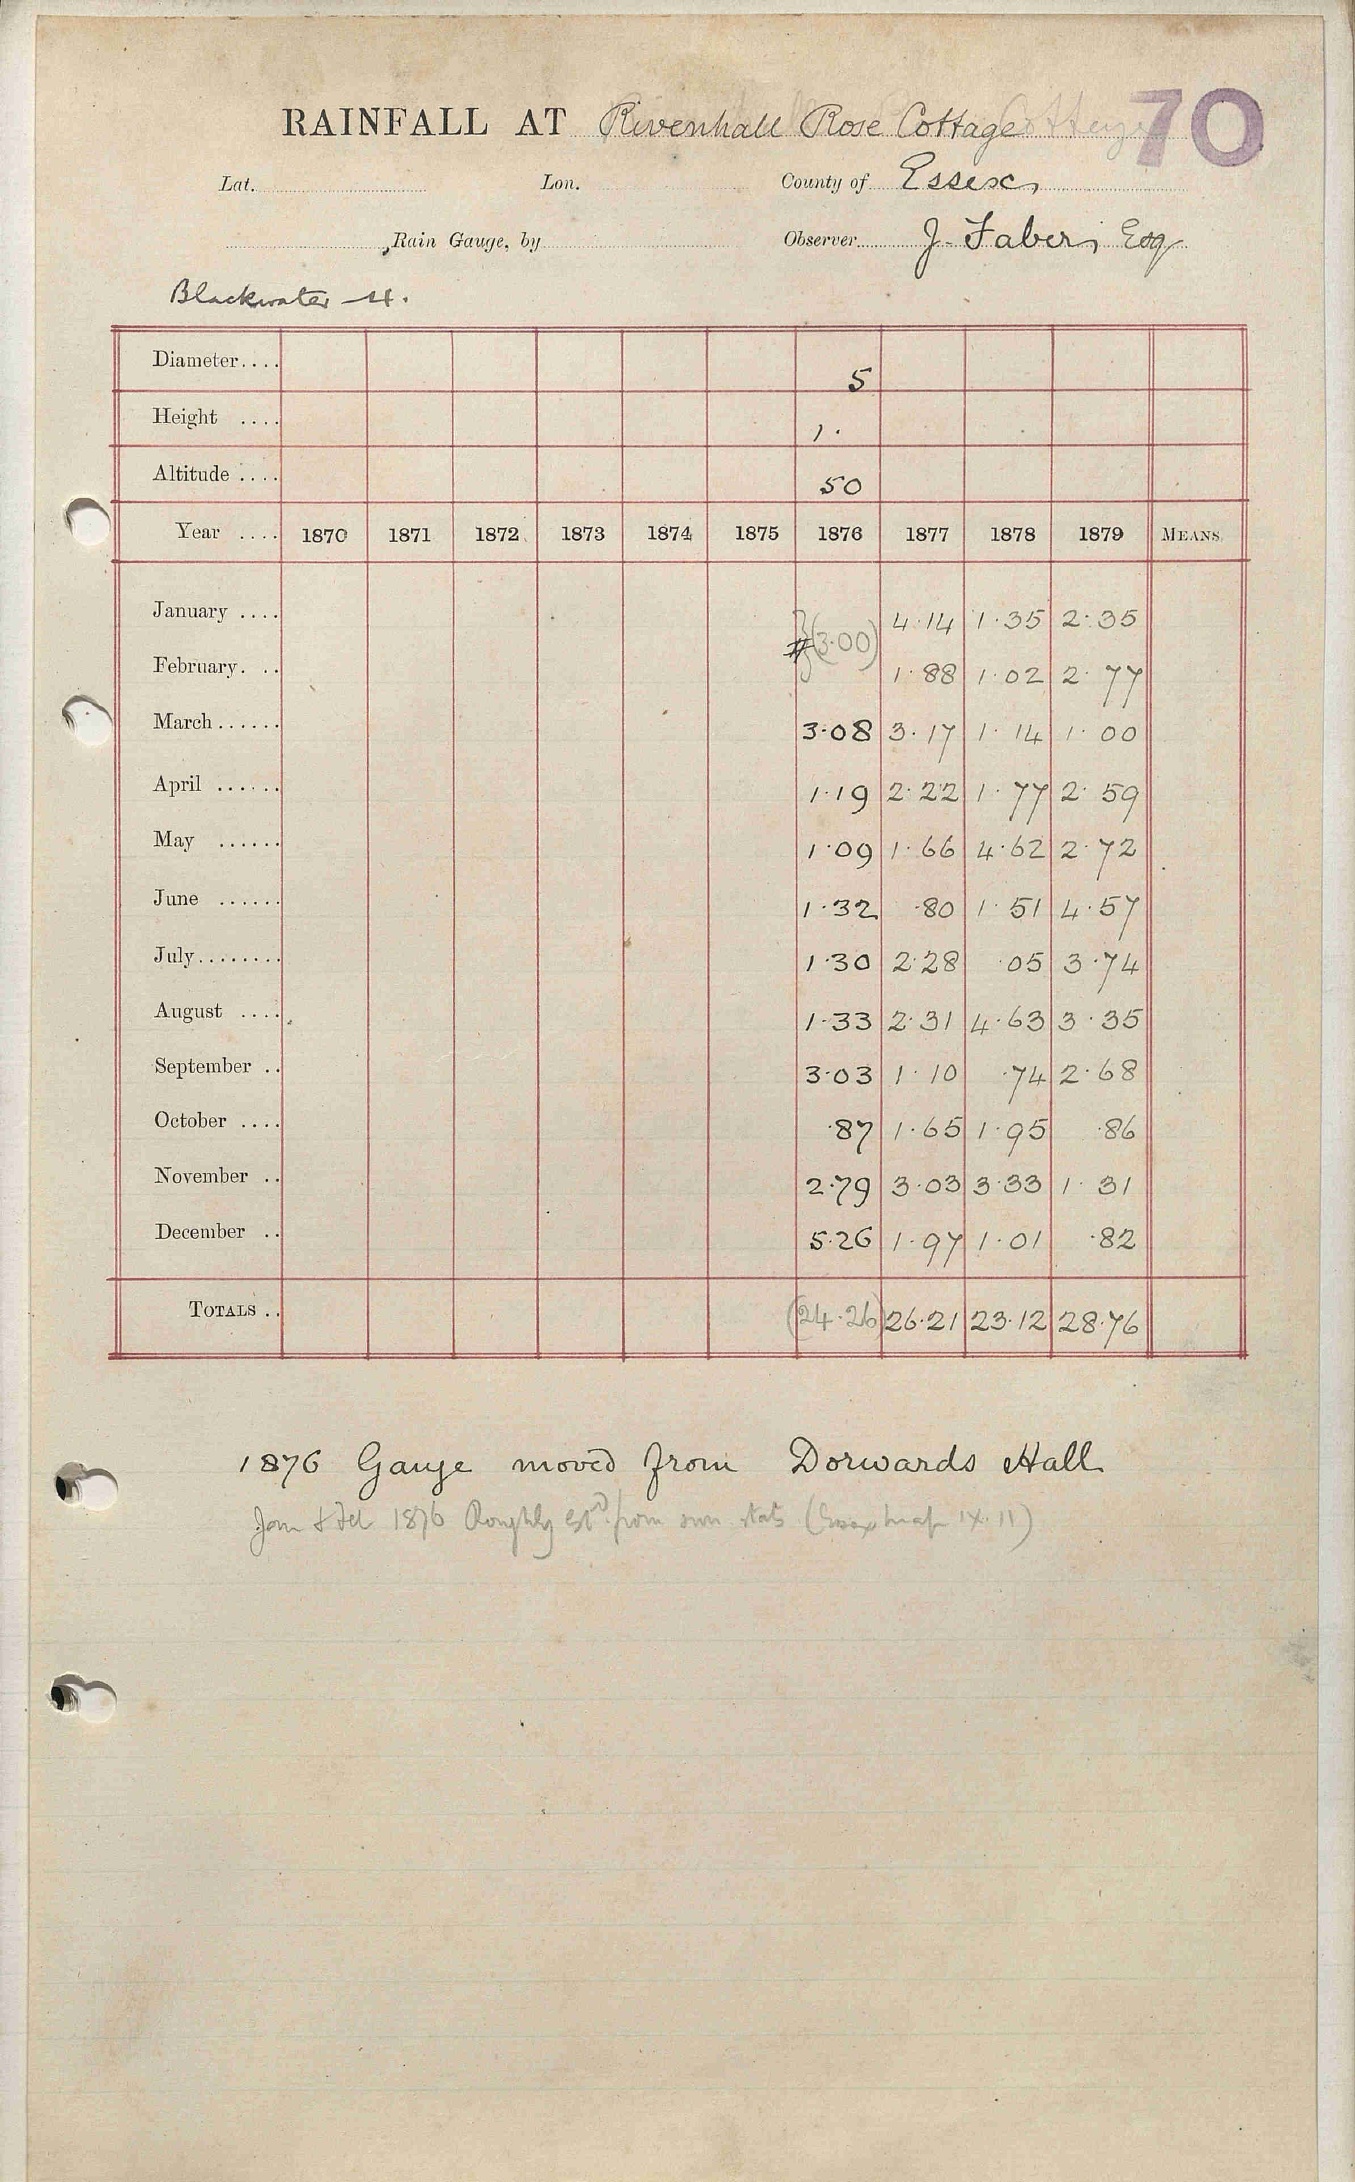 70
RAINFALL AT Rivenhall Rose Cottage
Lat. Lon. County of Essex,
Rain Gauge, by Observer J. Faber, Esq
Blackwater
Diameter.... 5
Height .... 1.
Altitude .... 50
Year .... 1870 1871 1872 1873 1874 1875 1876 1877 1878 1879 MEANS.
January .... 4.14 1.35 2.35
#(3.00)
February. .. 1.88 1.02 2.77
March...... 3.08 3.17 1.14 1.00
April ...... 1.19 2.22 1.77 2.59
May ...... 1.09 1.66 4.62 2.72
June ...... 1.32 .80 1.51 4.57
July........ 1.30 2.28 .05 3.74
August .... 1.33 2.31 4.63 3.35
September .. 3.03 1.10 .74 2.68
October .... .87 1.65 1.95 .86
November .. 2.79 3.03 3.33 1.31
December .. 5.26 1.97 1.01 .82
TOTALS .. (24.26) 26.21 23.12 28.76
1876 Gauge moved from Dorwards Hall
Jan & Feb 1876 Roughly estd from stats (Essex map IX.11)